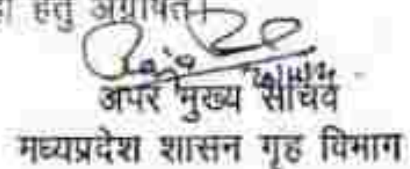 हेतु अग्रेषित।
अपर मुख्य सचिव
मध्यप्रदेश शासन गृह विभाग